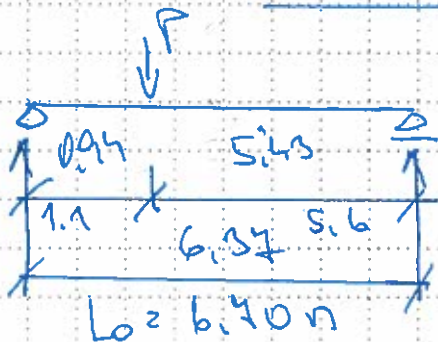 P
0,94 5,43
1.1 5,6
6,37
Lo = 6,70 m